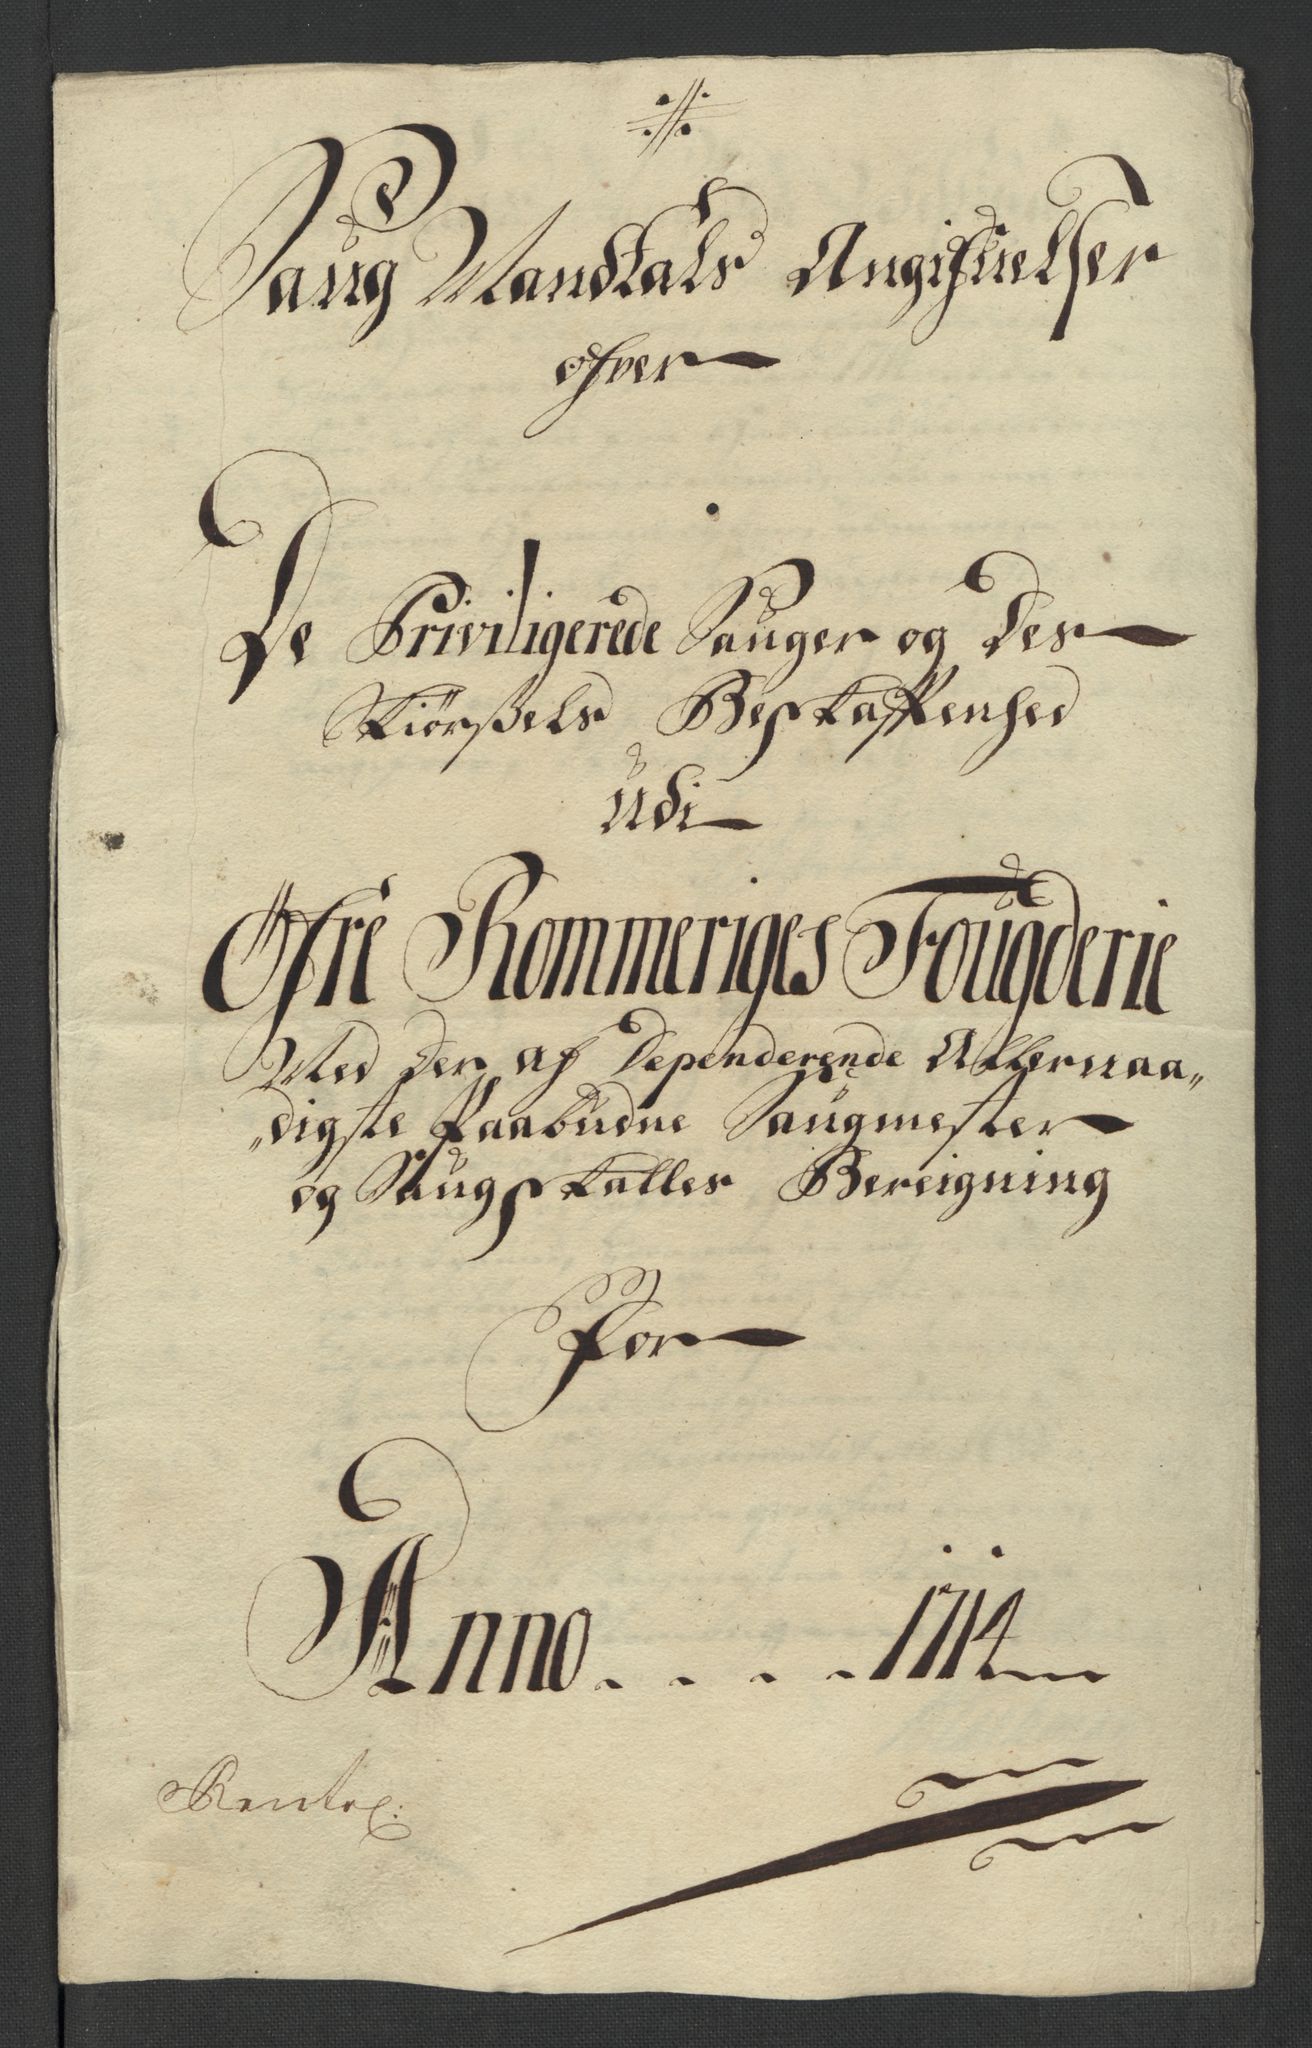 Saug Mandtals Angifuelser
ofver
De Priviligerede Sauger og Des
Skiørßels Beskaffenhed
udi
Øfre Rommeriges Fougderie
Med Der af Dependerende Allernaa„
„digste Paabudne Saugmester
og Saugskattes Bereigning
For
Anno . . . . 1714